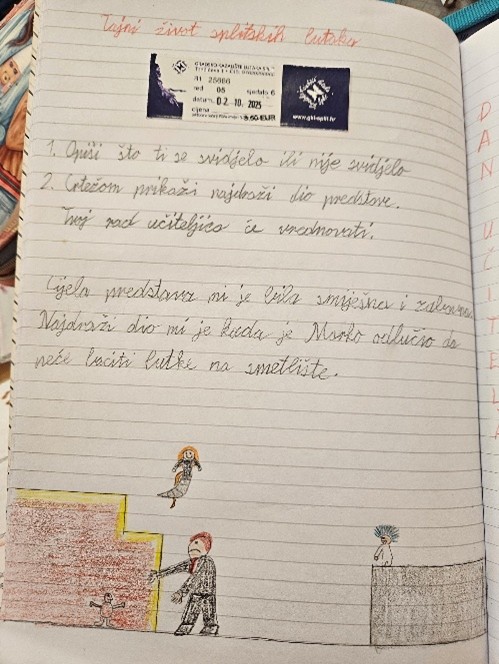 Tajni život splitskih lutaka
GRADSKO KAZALIŠTE LUTAKA SPLIT
red 05 sjedalo 6
datum 02. 10. 2025
cijena 5.50 EUR
www.gkl-split.hr
1. Opiši što ti se svidjelo ili nije svidjelo
2. Crtežom prikaži najdraži dio predstave.
Tvoj rad učiteljica će vrednovati.
Cijela predstava mi je bila smiješna i zabavna.
Najdraži dio mi je kada je Marko odlučio da
neće baciti lutke na smetlište.
DAN UČITELJA